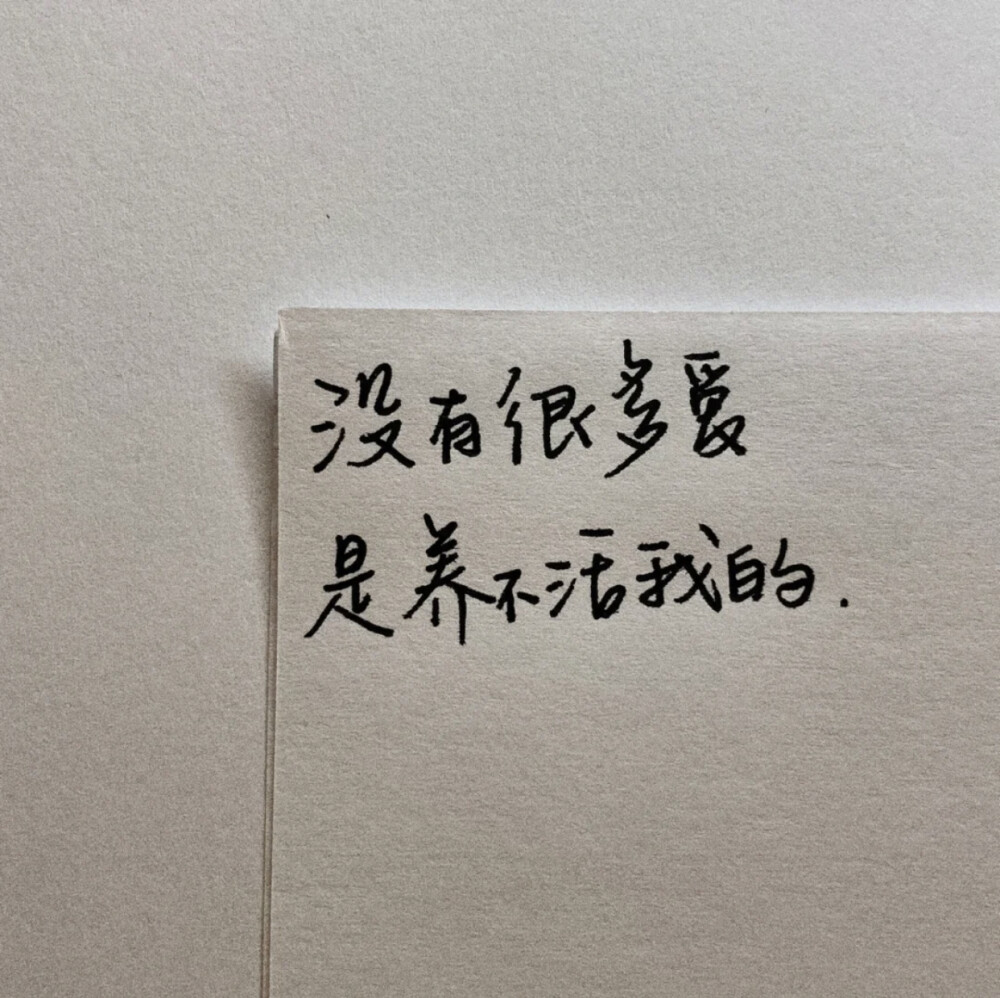 没有很多爱
是养不活我的.